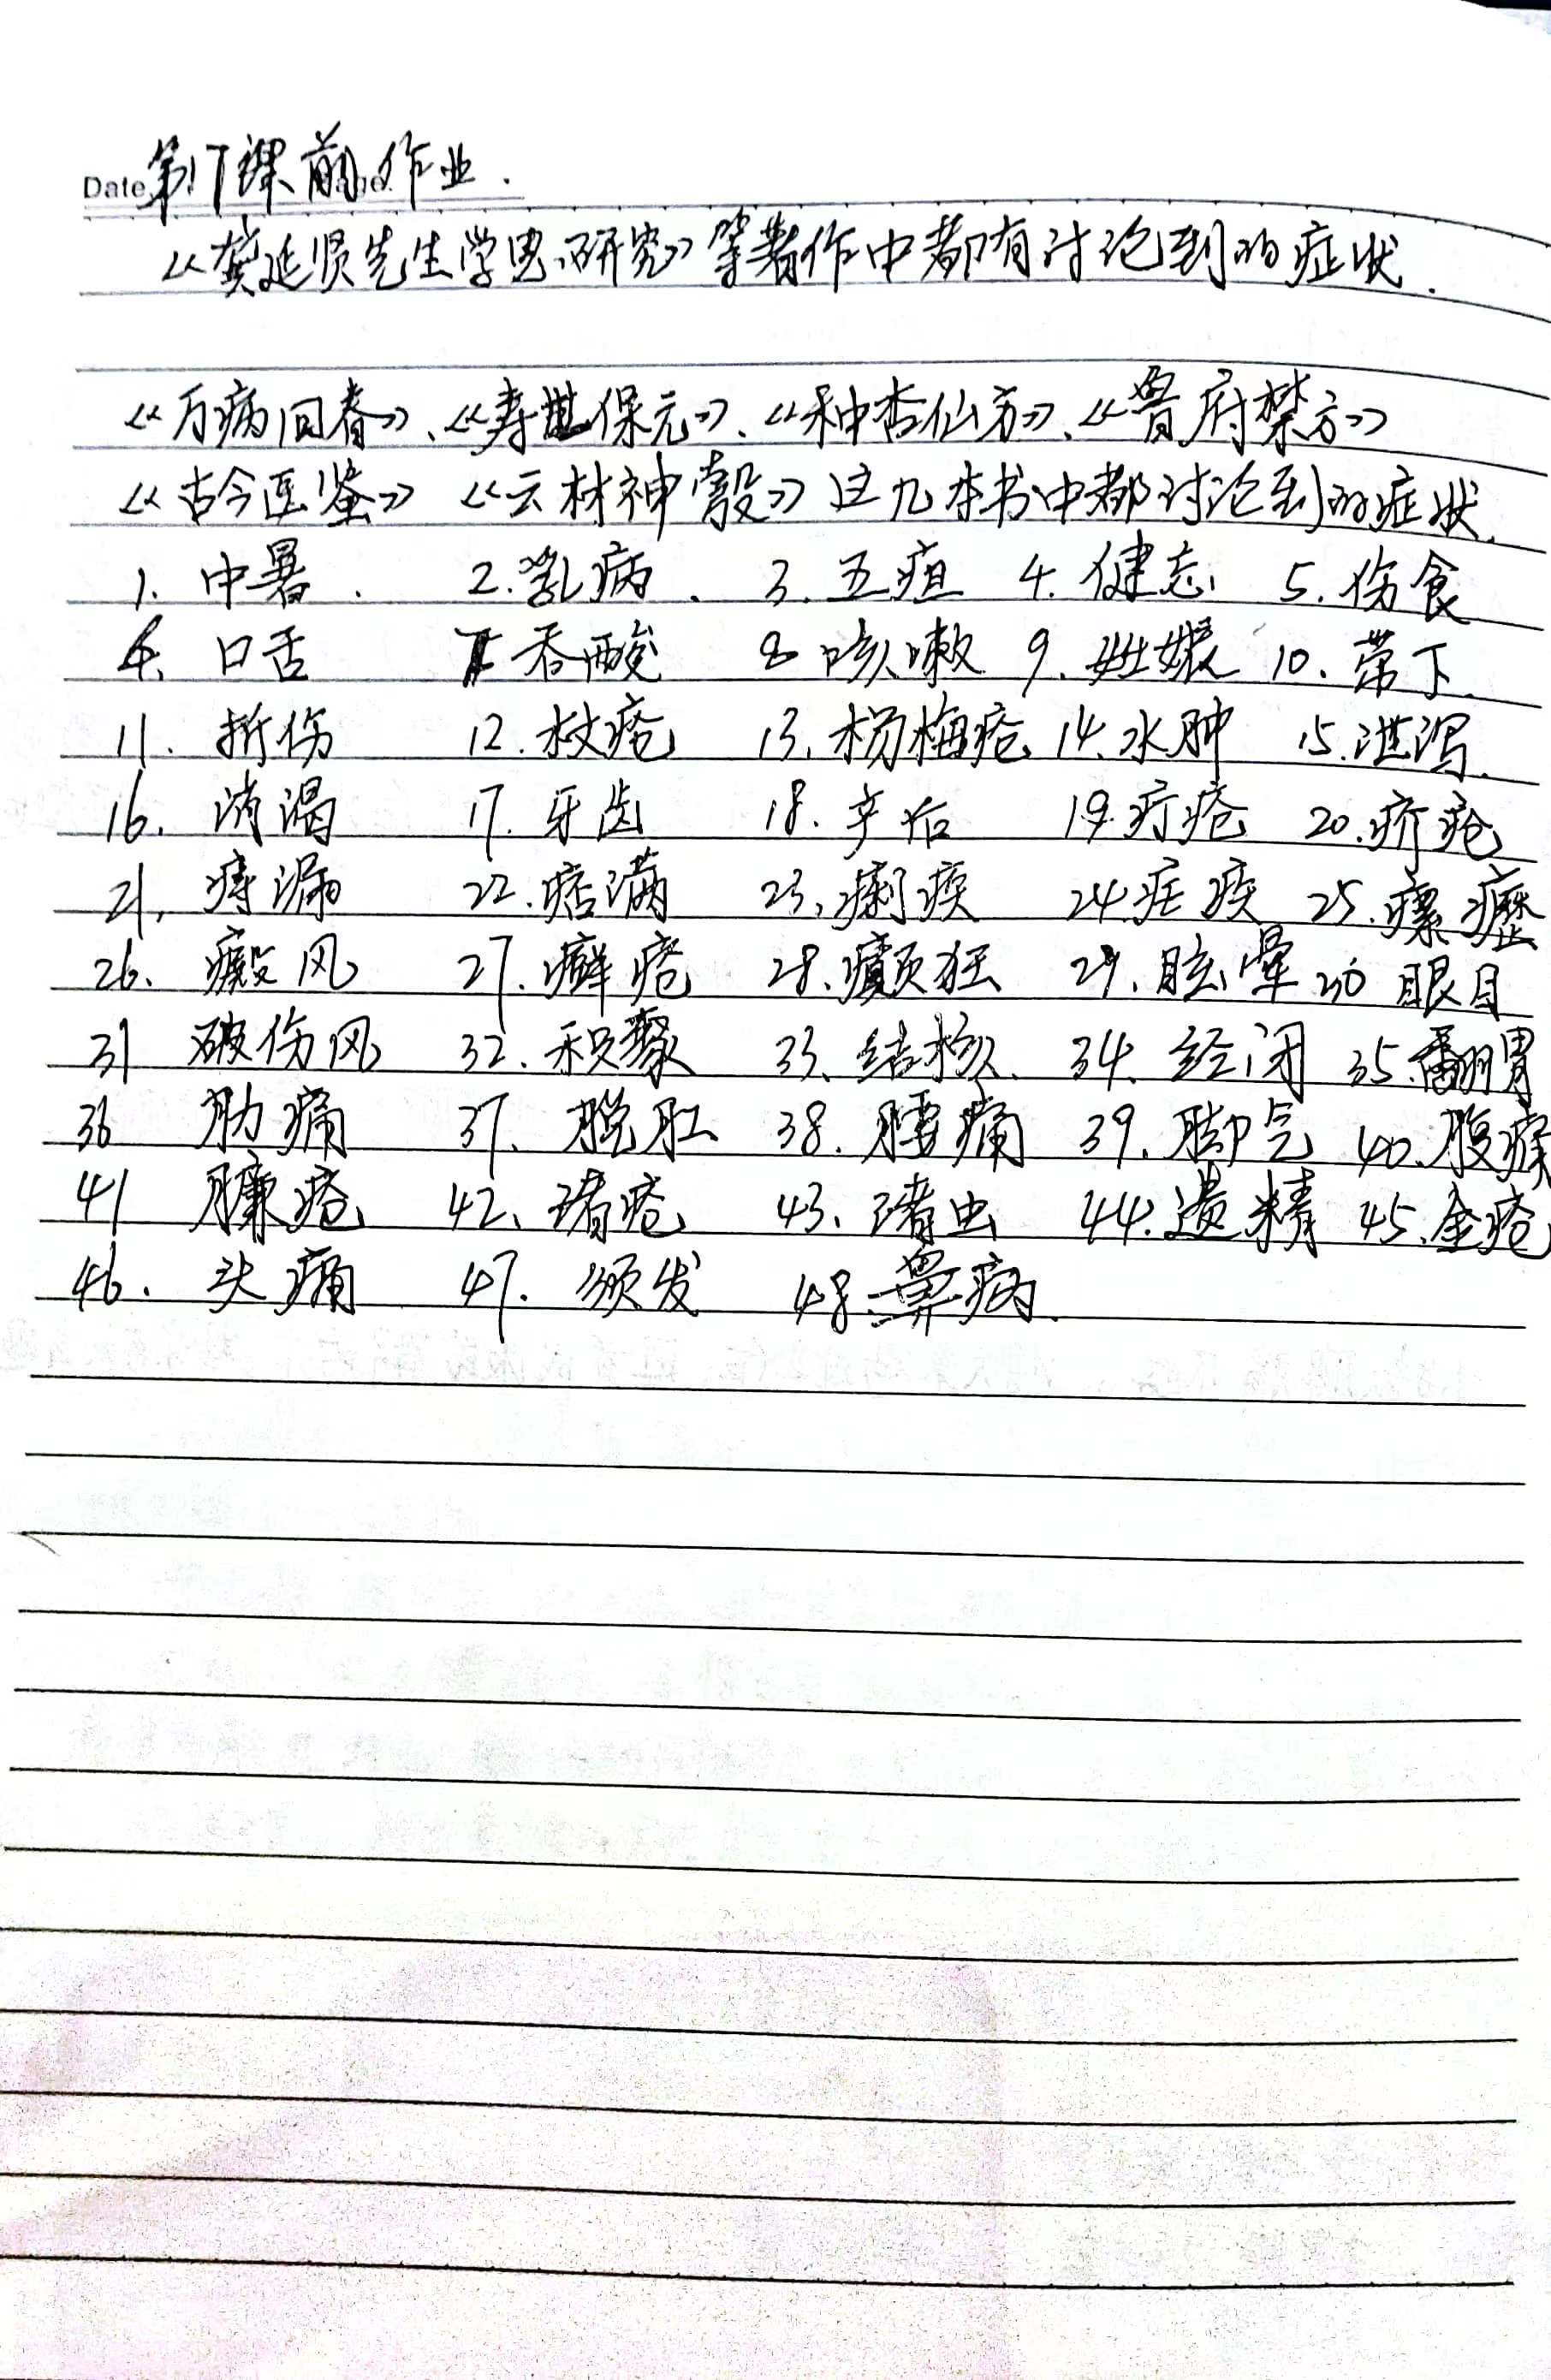 Date 第17课前作业.
《龚延贤先生学思研究》等著作中都有讨论到的症状.
《万病回春》、《寿世保元》、《种杏仙方》、《鲁府禁方》
《古今医鉴》 《云林神彀》这几本书中都讨论到的症状.
1. 中暑. 2. 乳病. 3. 五疸 4. 健忘 5. 伤食
6. 口舌 7 吞酸 8 咳嗽 9. 妊娠 10. 带下.
11. 折伤 12. 杖疮 13. 杨梅疮 14. 水肿 15. 泄泻.
16. 消渴 17. 牙齿 18. 产后 19. 疔疮 20. 疥疮
21. 痔漏 22. 痞满 23. 痢疾 24. 疟疾 25. 瘰癧
26. 癜风 27. 癣疮 28. 癫狂 29. 眩晕 30 眼目
31 破伤风 32. 积聚 33. 结核. 34. 经闭 35. 翻胃
36 胁痛 37. 脱肛 38. 腰痛 39. 脚气 40. 腹痛
41 臁疮 42. 诸疮 43. 诸虫 44. 遗精 45. 金疮
46. 头痛 47. 须发 48. 鼻病.